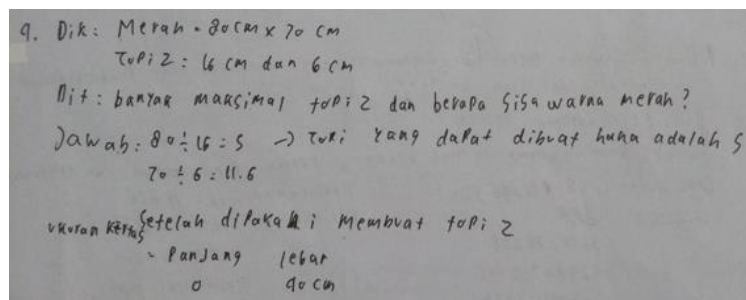 9. Dik : Merah = 80 cm x 70 cm
Topi 2 : 16 cm dan 6 cm
Dit : banyak maksimal topi 2 dan berapa sisa warna merah?
Jawab : 80 ÷ 16 = 5 → Topi yang dapat dibuat hana adalah 5
70 ÷ 6 = 11.6
ukuran kertas setelah dipakai membuat topi 2
= Panjang lebar
0 40 cm